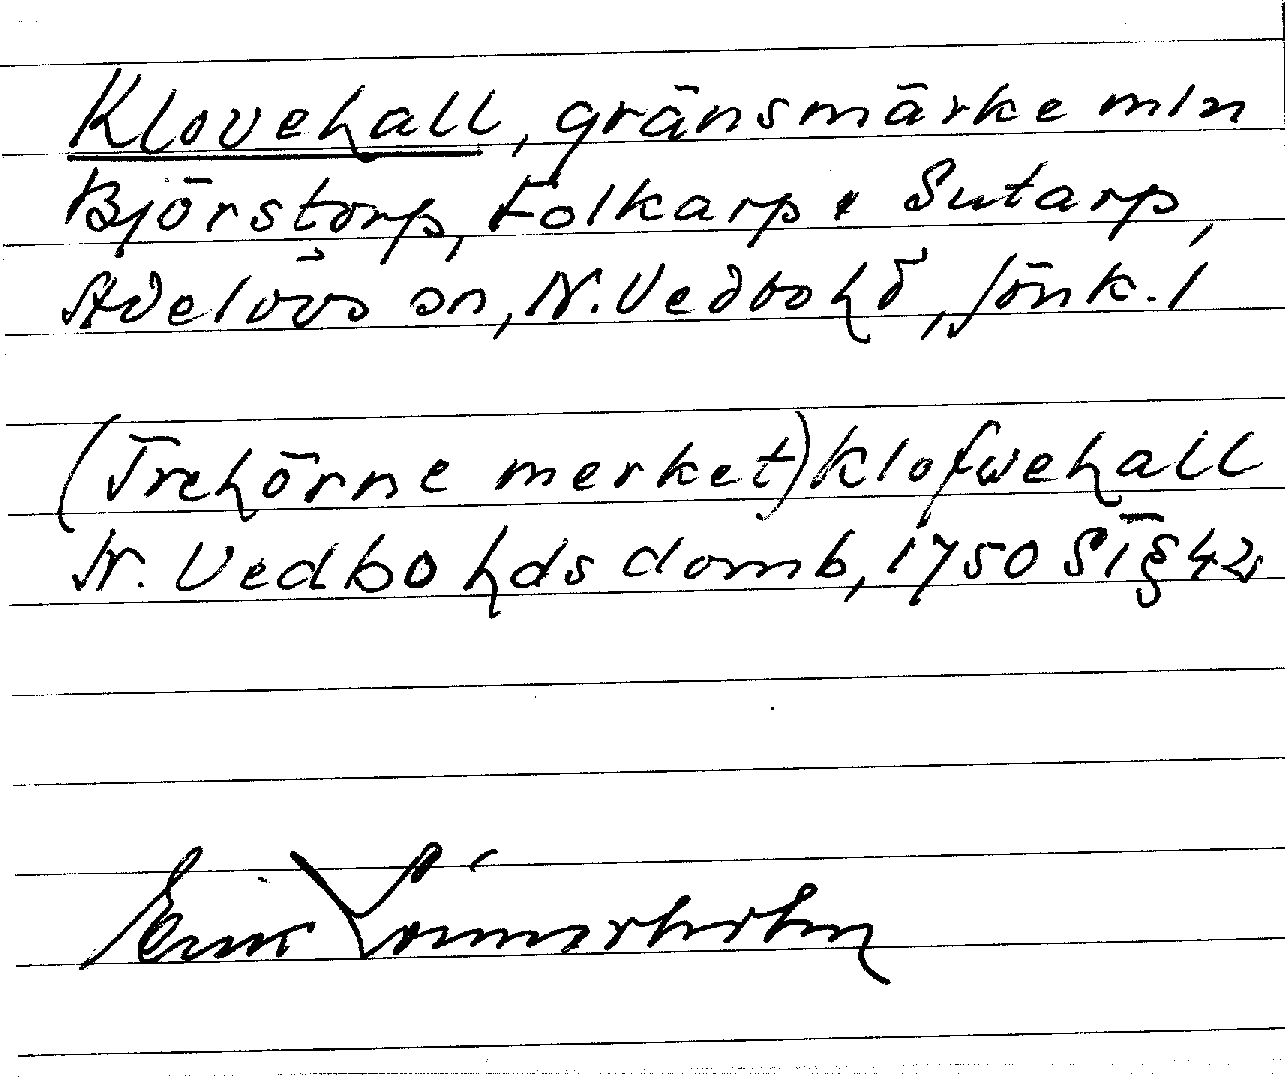 Klovehall, gränsmärke mln
Björstorp, Folkarp & Sutarp,
Adelövs sn, N. Vedbo hd, Jönk. l
(Trehörne merket) Klofwehall
N. Vedbo hds domb, 1750 ST § 42
Erik